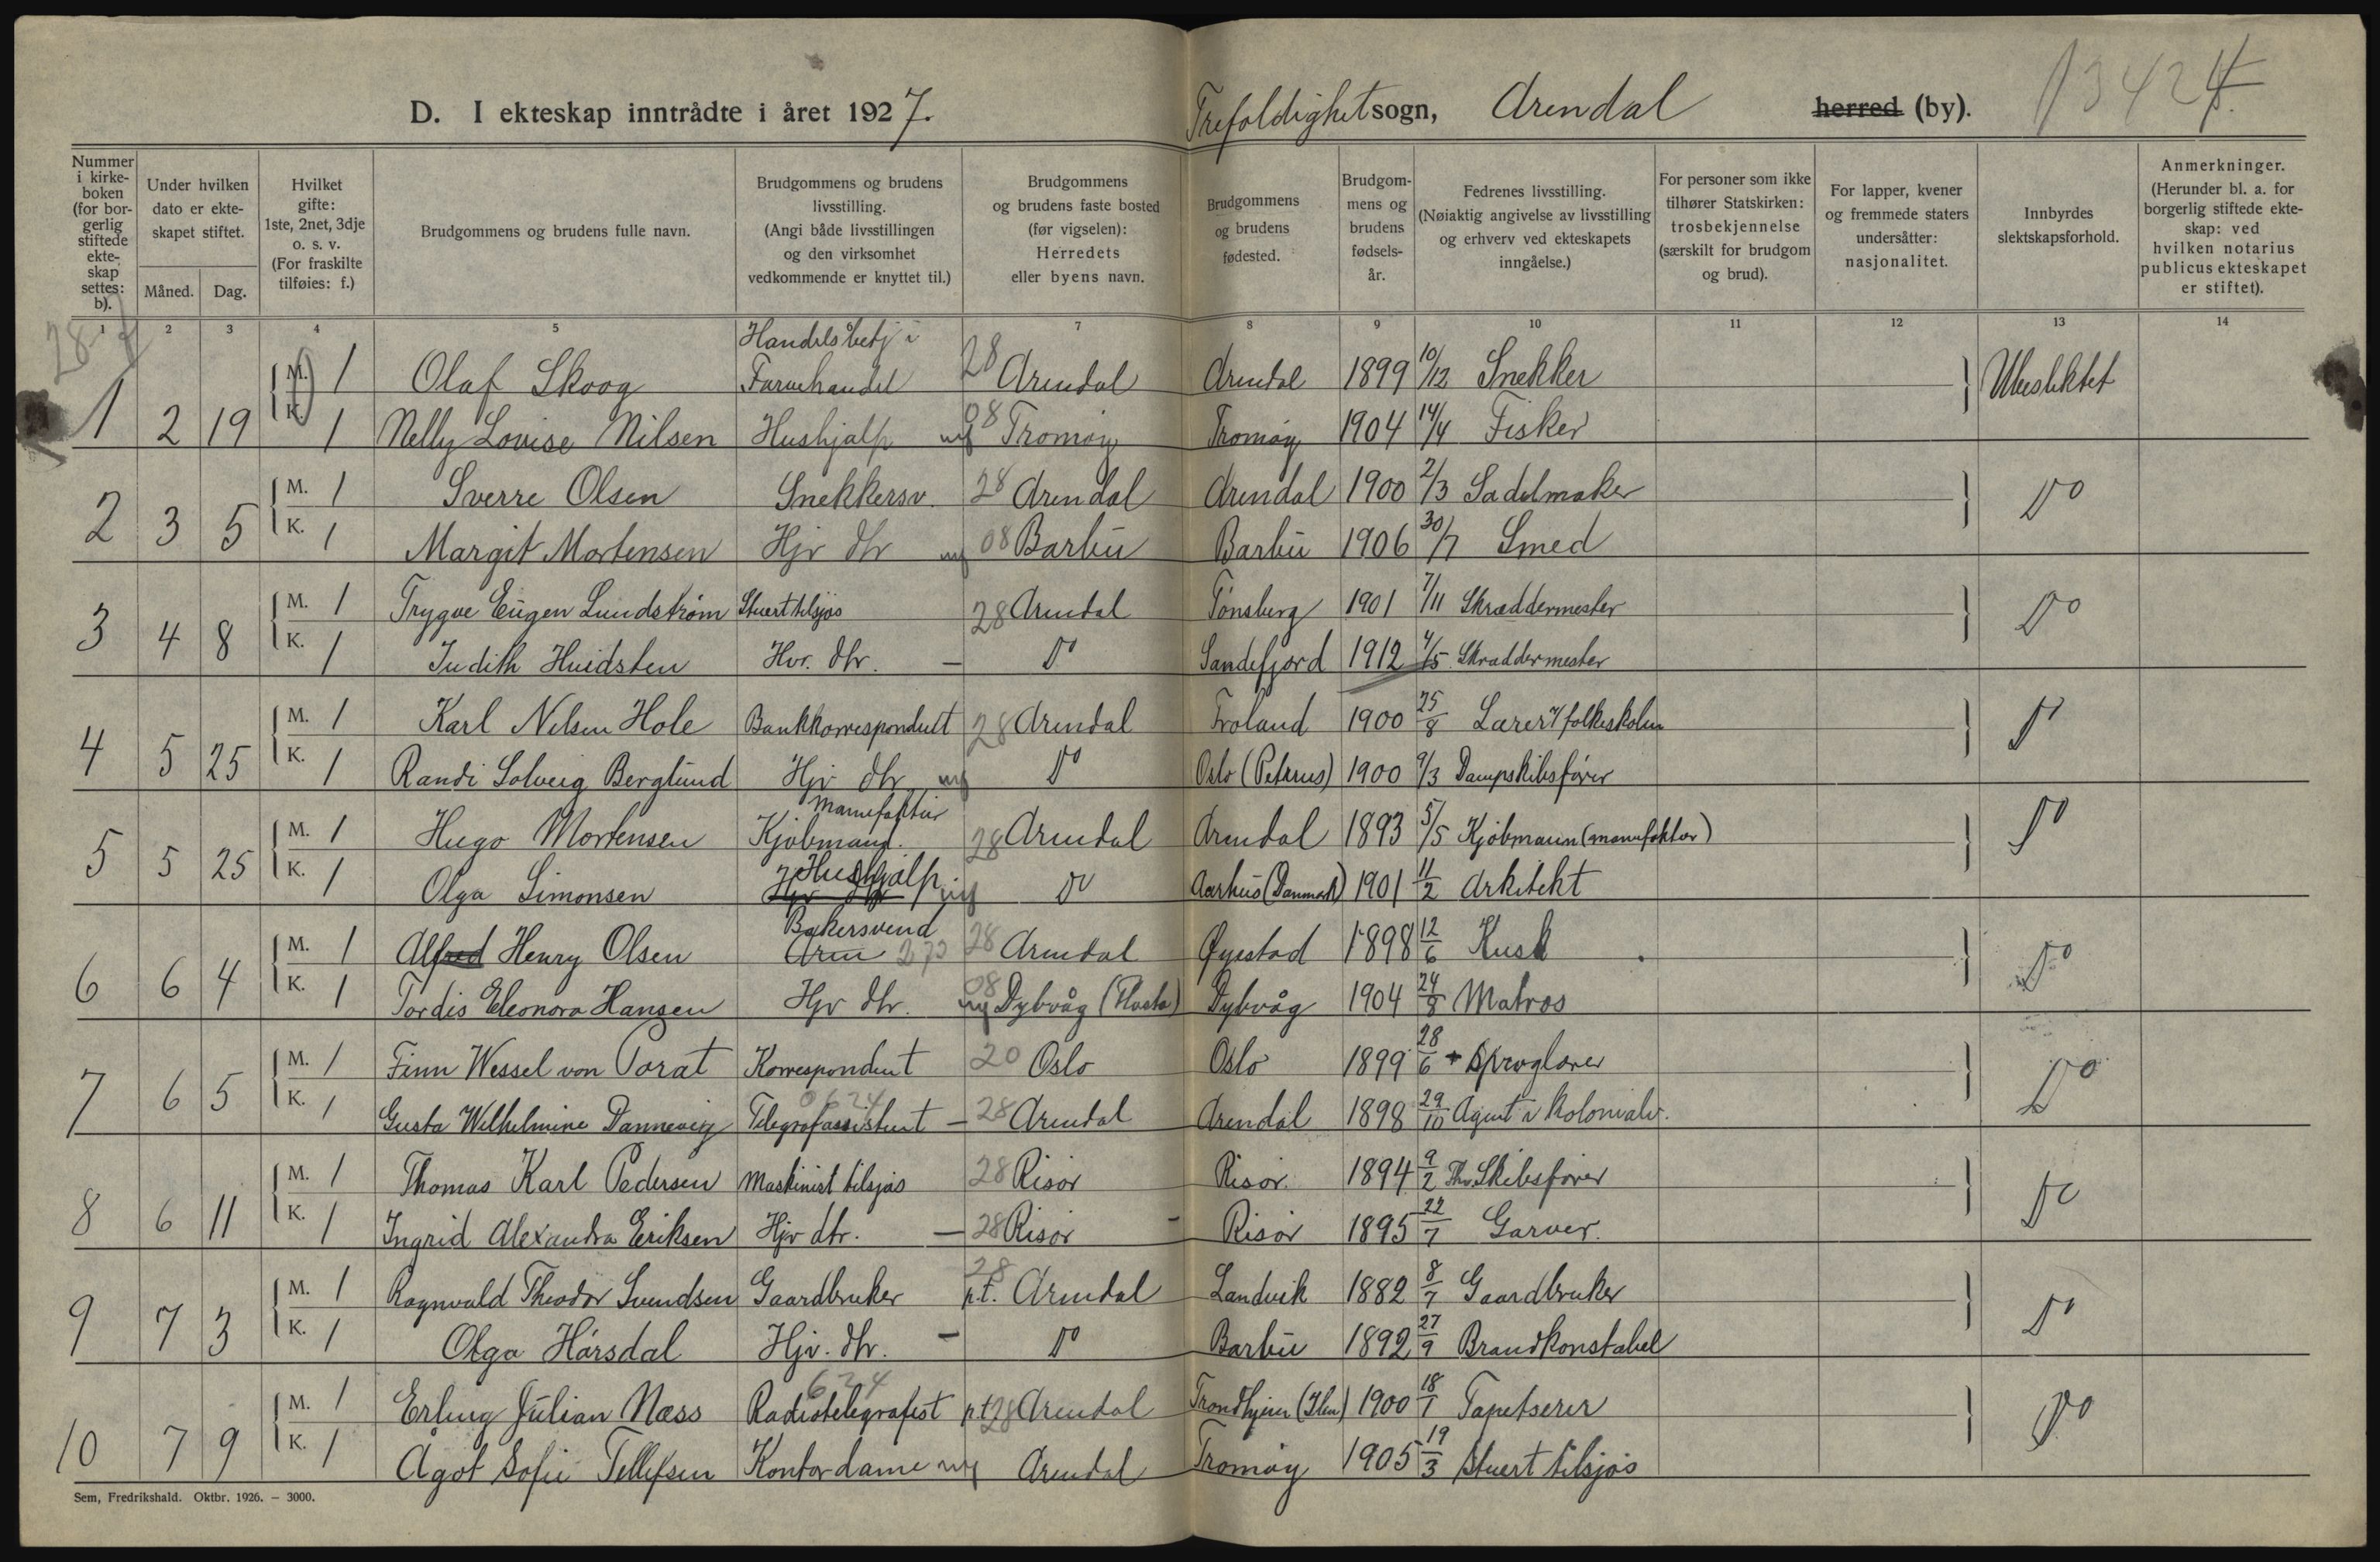 D. I ekteskap inntrådte i året 1927. Trefoldighet sogn, Arendal herred (by). 13424
Nummer i kirkeboken (for borgerlig stiftede ekteskap settes: b).
Under hvilken dato er ekteskapet stiftet.
Måned. Dag.
Hvilket gifte: 1ste, 2net, 3dje o. s. v. (For fraskilte tilføies: f.)
Brudgommens og brudens fulle navn.
Brudgommens og brudens livsstilling. (Angi både livsstillingen og den virksomhet vedkommende er knyttet til.)
Brudgommens og brudens faste bosted (før vigselen): Herredets eller byens navn.
Brudgommens og brudens fødested.
Brudgommens og brudens fødselsår.
Fedrenes livsstilling. (Nøiaktig angivelse av livsstilling og erhverv ved ekteskapets inngåelse.)
For personer som ikke tilhører Statskirken: trosbekjennelse (særskilt for brudgom og brud).
For lapper, kvener og fremmede staters undersåtter: nasjonalitet.
Innbyrdes slektskapsforhold.
Anmerkninger. (Herunder bl. a. for borgerlig stiftede ekteskap: ved hvilken notarius publicus ekteskapet er stiftet).
1 2 3 4 5 6 7 8 9 10 11 12 13 14
Handelsbetj i
M. 1 Olaf Skoog Farvehandel 28 Arendal Arendal 1899 10/12 Snekker Ubeslektet
1 2 19 K. 1 Nelly Lovise Nilsen Hushjalp 08 Tromøy Tromøy 1904 14/4 Fisker
M. 1 Sverre Olsen Snekkersv. 28 Arendal Arendal 1900 2/3 Sadelmaker Do
2 3 5 K. 1 Margit Mortensen Hjv dtr 08 Barbu Barbu 1906 30/7 Smed
M. 1 Trygve Eugen Lundstrøm Stuert tilsjøs 28 Arendal Tønsberg 1901 7/11 Skræddermester Do
3 4 8 K. 1 Judith Huidsten Hvr. dtr. — Do Sandefjord 1912 4/5 Skræddermester
M. 1 Karl Nilsen Hole Bankkorrespondent 28 Arendal Froland 1900 25/8 Lærer v/ folkeskolen Do
4 5 25 K. 1 Randi Solveig Berglund Hjv dtr Do Oslo (Petrus) 1900 9/3 Dampskibsfører
Manufaktur
M. 1 Hugo Mortensen Kjøbmand. 28 Arendal Arendal 1893 5/5 Kjøbmann (manufaktur) Do
Hushjalp
5 5 25 K. 1 Olga Simonsen Hjv dtr Do Aarhus (Danmark) 1901 11/2 Arkitekt
Bakersvend
M. 1 Alfred Henry Olsen 273 28 Arendal Øyestad 1898 12/6 Kusk Do
6 6 4 K. 1 Tordis Eleonora Hansen Hjv dtr. 08 Dybvåg (Flosta) Dybvåg 1904 24/8 Matros
M. 1 Finn Wessel von Porat Korrespondent 20 Oslo Oslo 1899 28/6 + Sproglærer Do
0624
7 6 5 K. 1 Gusta Wilhelmine Dannevig Telegrafassistent — 28 Arendal Arendal 1898 29/10 Agent i kolonialv.
M. 1 Thomas Karl Pedersen Maskinist tilsjøs 28 Risør Risør. 1894 9/2 Skibsfører Do
8 6 11 K. 1 Ingrid Alexandra Eriksen Hjv dtr. — 28 Risør Risør 1895 22/7 Garver.
M. 1 Ragnvald Theodor Svendsen Gaardbruker 28 p.t. Arendal Landvik 1882 8/7 Gaardbruker Do
9 7 3 K. 1 Olga Hårsdal Hjv. dtr. — Do Barbu 1892 27/9 Brandkonstabel
624
M. 1 Erling Julian Næss Radiotelegrafist p.t. 28 Arendal Trondhjem (Ilen) 1900 18/1 Tapetserer Do
10 7 9 K. 1 Ågot Sofie Tellefsen Kontordame Arendal Tromøy 1905 19/3 Stuert tilsjøs
Sem, Fredrikshald. Oktbr. 1926. — 3000.